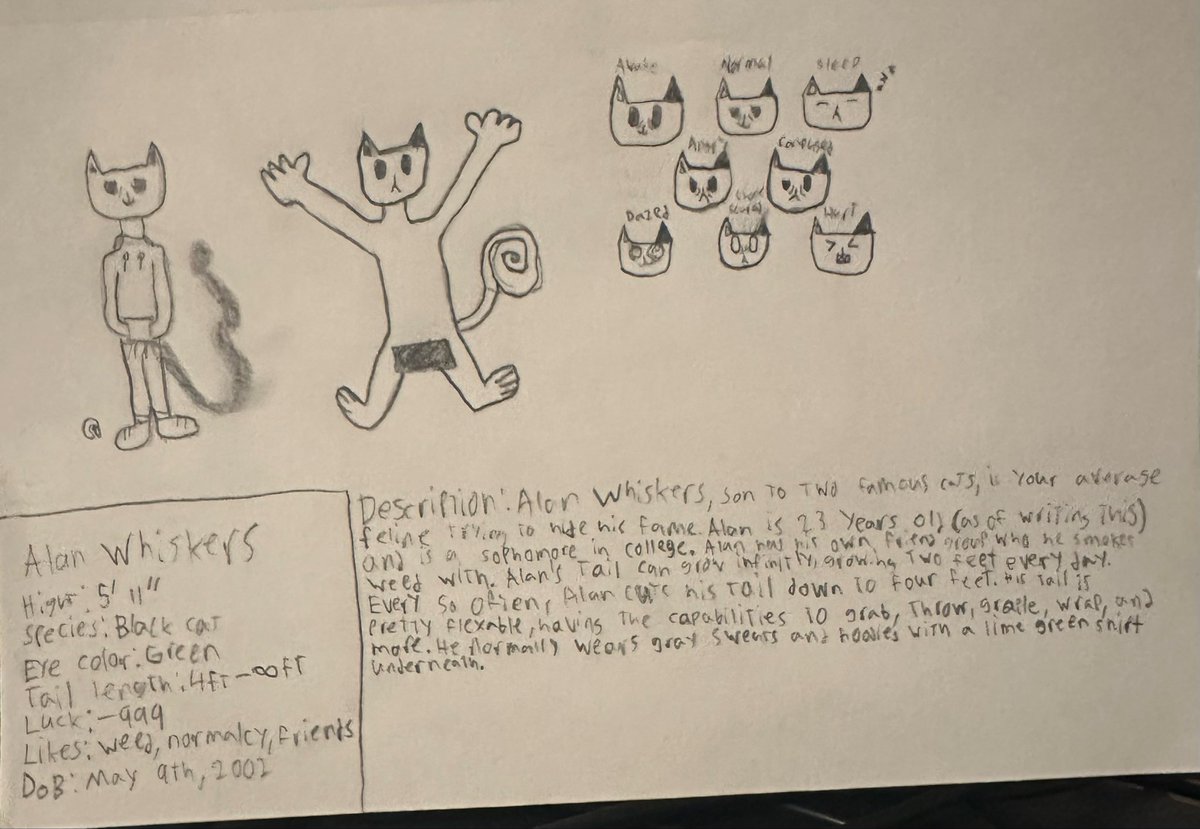 Awake Normal Sleep
Angry Confused
Dazed scared Hurt
Alan Whiskers
Hight: 5' 11"
Species: Black cat
Eye color: Green
Tail length: 4ft-∞ft
Luck: -999
Likes: weed, normalcy, friends
DoB: May 9th, 2002
Description: Alan Whiskers, son to two famous cats, is your average
feline trying to hide his fame. Alan is 23 years old (as of writing this)
and is a sophomore in college. Alan has his own friend group who he smokes
weed with. Alan's tail can grow infinitly, growing two feet every day.
Every so often, Alan cuts his tail down to four feet. His tail is
pretty flexable, having the capabilities to grab, throw, grapple, wrap, and
more. He normally wears gray sweats and hoodies with a lime green shirt
underneath.